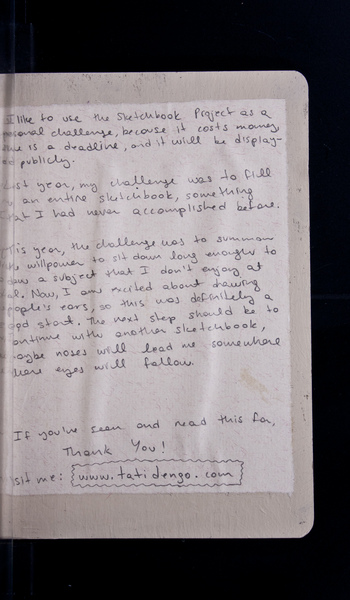 I like to use the Sketchbook Project as a
personal challenge, because it costs money,
there is a deadline, and it will be display-
ed publicly.
Last year, my challenge was to fill
an entire sketchbook, something
that I had never accomplished before.
This year, the challenge was to summon
the willpower to sit down long enough to
draw a subject that I don't enjoy at
all. Now, I am excited about drawing
people's ears, so this was definitely a
good start. The next step should be to
continue with another sketchbook,
maybe noses will lead me somewhere
where eyes will follow.
If you've seen and read this far,
Thank You!
visit me: www.tatidengo.com